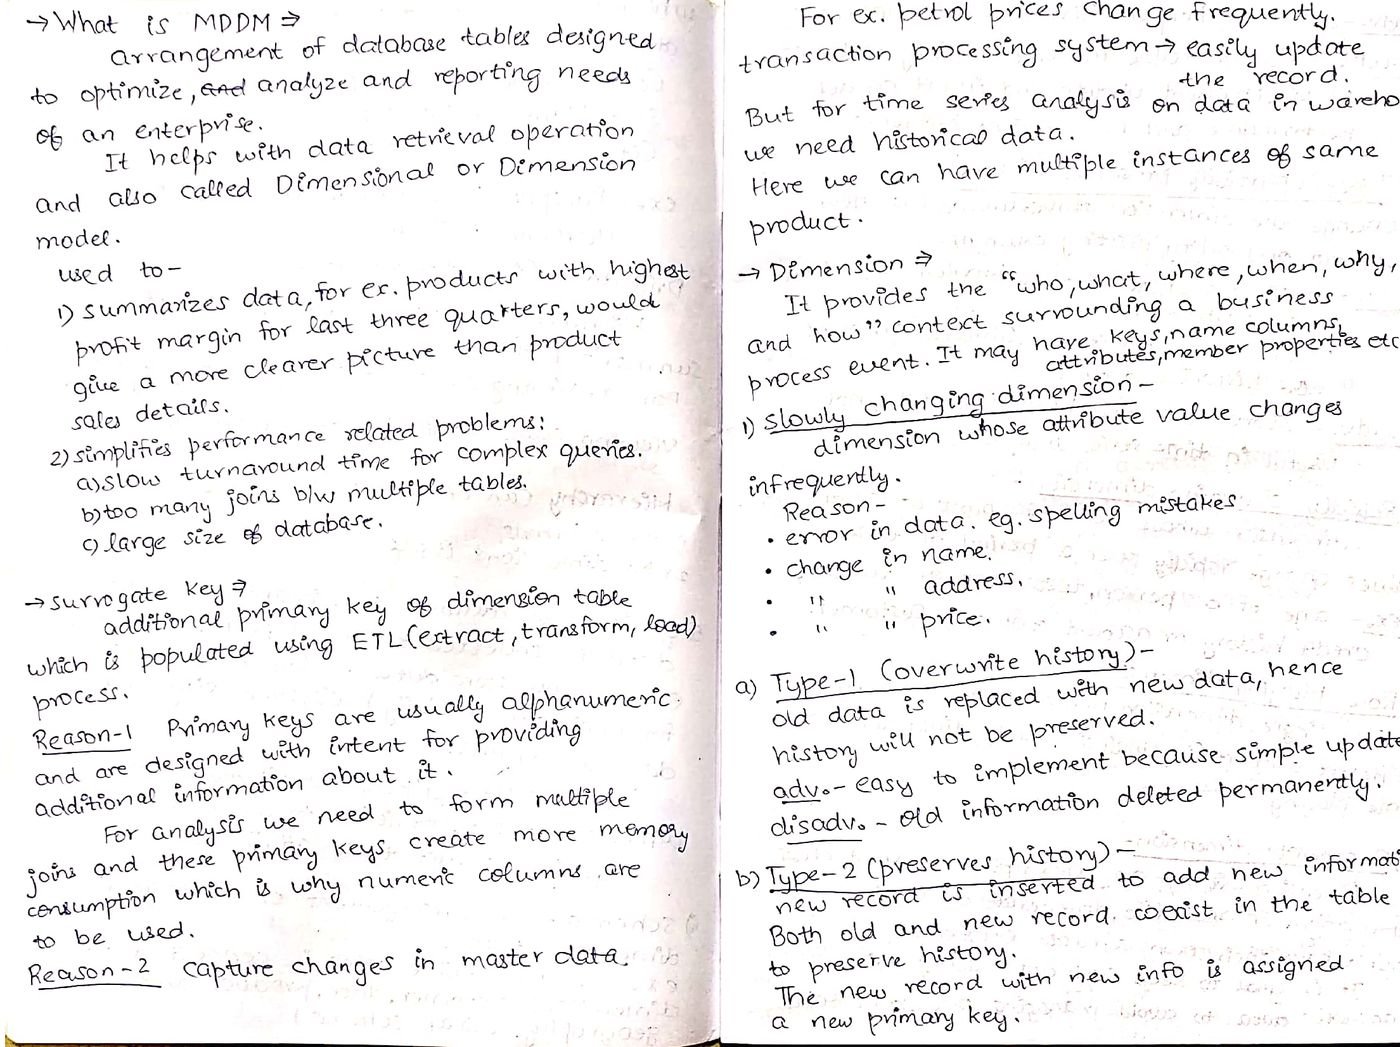 → What is MDDM ⇒
Arrangement of database tables designed
to optimize, and analyze and reporting needs
of an enterprise.
It helps with data retrieval operation
and also called Dimensional or Dimension
model.
used to -
1) summarizes data, for ex. products with highest
profit margin for last three quarters, would
give a more clearer picture than product
sales details.
2) simplifies performance related problems:
a) slow turnaround time for complex queries.
b) too many joins b/w multiple tables.
c) large size of database.
→ surrogate key ⇒
additional primary key of dimension table
which is populated using ETL (extract, transform, load)
process.
Reason-1 Primary keys are usually alphanumeric
and are designed with intent for providing
additional information about it.
For analysis we need to form multiple
joins and these primary keys create more memory
consumption which is why numeric columns are
to be used.
Reason-2 capture changes in master data.
For ex. petrol prices change frequently.
transaction processing system → easily update
the record.
But for time series analysis on data in wareho
we need historical data.
Here we can have multiple instances of same
product.
→ Dimension ⇒
It provides the "who, what, where, when, why,
and how" context surrounding a business
process event. It may have keys, name columns,
attributes, member properties etc
1) slowly changing dimension -
dimension whose attribute value changes
infrequently.
Reason -
• error in data. eg. spelling mistakes
• change in name.
• " " address.
• " " price.
a) Type-1 (overwrite history) -
old data is replaced with new data, hence
history will not be preserved.
adv. - easy to implement because simple update
disadv. - old information deleted permanently.
b) Type-2 (preserves history) -
new record is inserted to add new informati
Both old and new record coexist in the table
to preserve history.
The new record with new info is assigned
a new primary key.